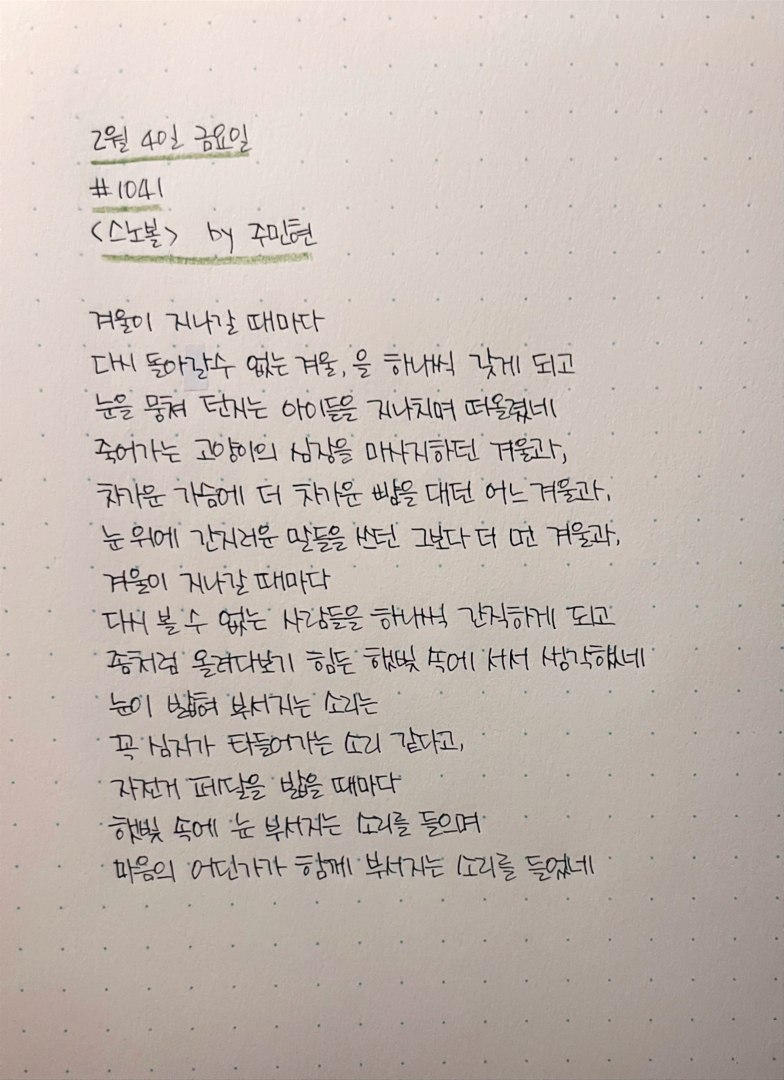 2월 4일 금요일
#1041
<스노볼> by 주민현
겨울이 지나갈 때마다
다시 돌아갈수 없는 겨울, 을 하나씩 갖게 되고
눈을 뭉쳐 던지는 아이들을 지나치며 떠올렸네
죽어가는 고양이의 심장을 마사지하던 겨울과,
차가운 가슴에 더 차가운 뺨을 대던 어느 겨울과,
눈 위에 간지러운 말들을 쓰던 그보다 더 먼 겨울과,
겨울이 지나갈 때마다
다시 볼 수 없는 사람들을 하나씩 간직하게 되고
좀처럼 올려다보기 힘든 햇빛 속에 서서 생각했네
눈이 밟혀 부서지는 소리는
꼭 심지가 타들어가는 소리 같다고,
자전거 페달을 밟을 때마다
햇빛 속에 눈 부서지는 소리를 들으며
마음의 어딘가가 함께 부서지는 소리를 들었네